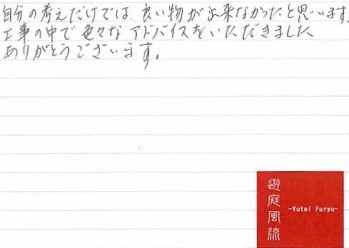 自分の考えだけでは、良い物が出来なかったと思います。
工事の中で色々なアドバイスをいただきました
ありがとうございます。
遊庭風流
-Yutei Furyu-